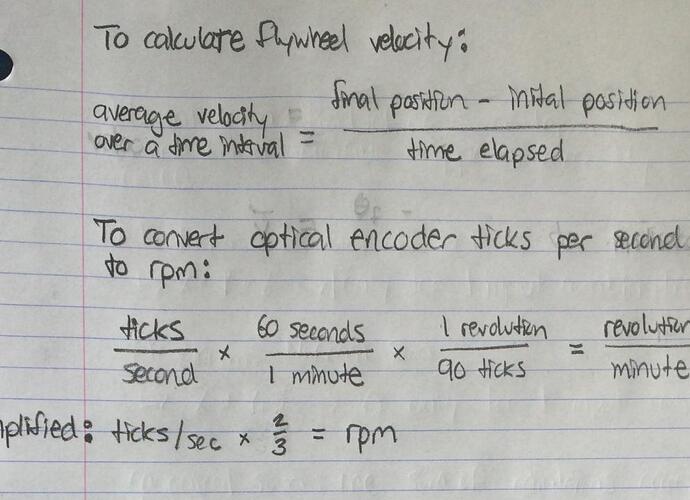 To calculate flywheel velocity:
average velocity over a time interval = final position - inital position / time elapsed
To convert optical encoder ticks per second
to rpm:
ticks/second × 60 seconds/1 minute × 1 revolution/90 ticks = revolution/minute
plified: ticks/sec × 2/3 = rpm